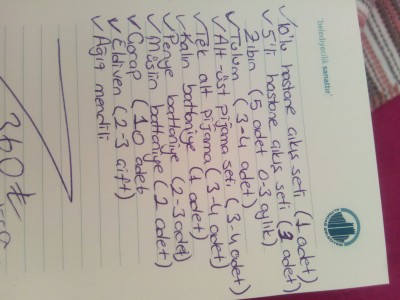 "belediyecilik sanatı"
✓ 10'lu hastane çıkış seti (1 adet)
✓ 5'li hastane çıkış seti (2 adet)
Zıbın (5 adet 0-3 aylık)
✓ Tulum (3-4 adet)
✓ Alt-üst pijama seti (3-4 adet)
✓ Tek alt pijama (3-4 adet)
✓ Kalın battaniye (1 adet)
✓ Penye battaniye (2-3 adet)
✓ Müslin battaniye (2 adet)
✓ Çorap (10 adet)
✓ Eldiven (2-3 çift)
✓ Ağız mendili
340 ₺